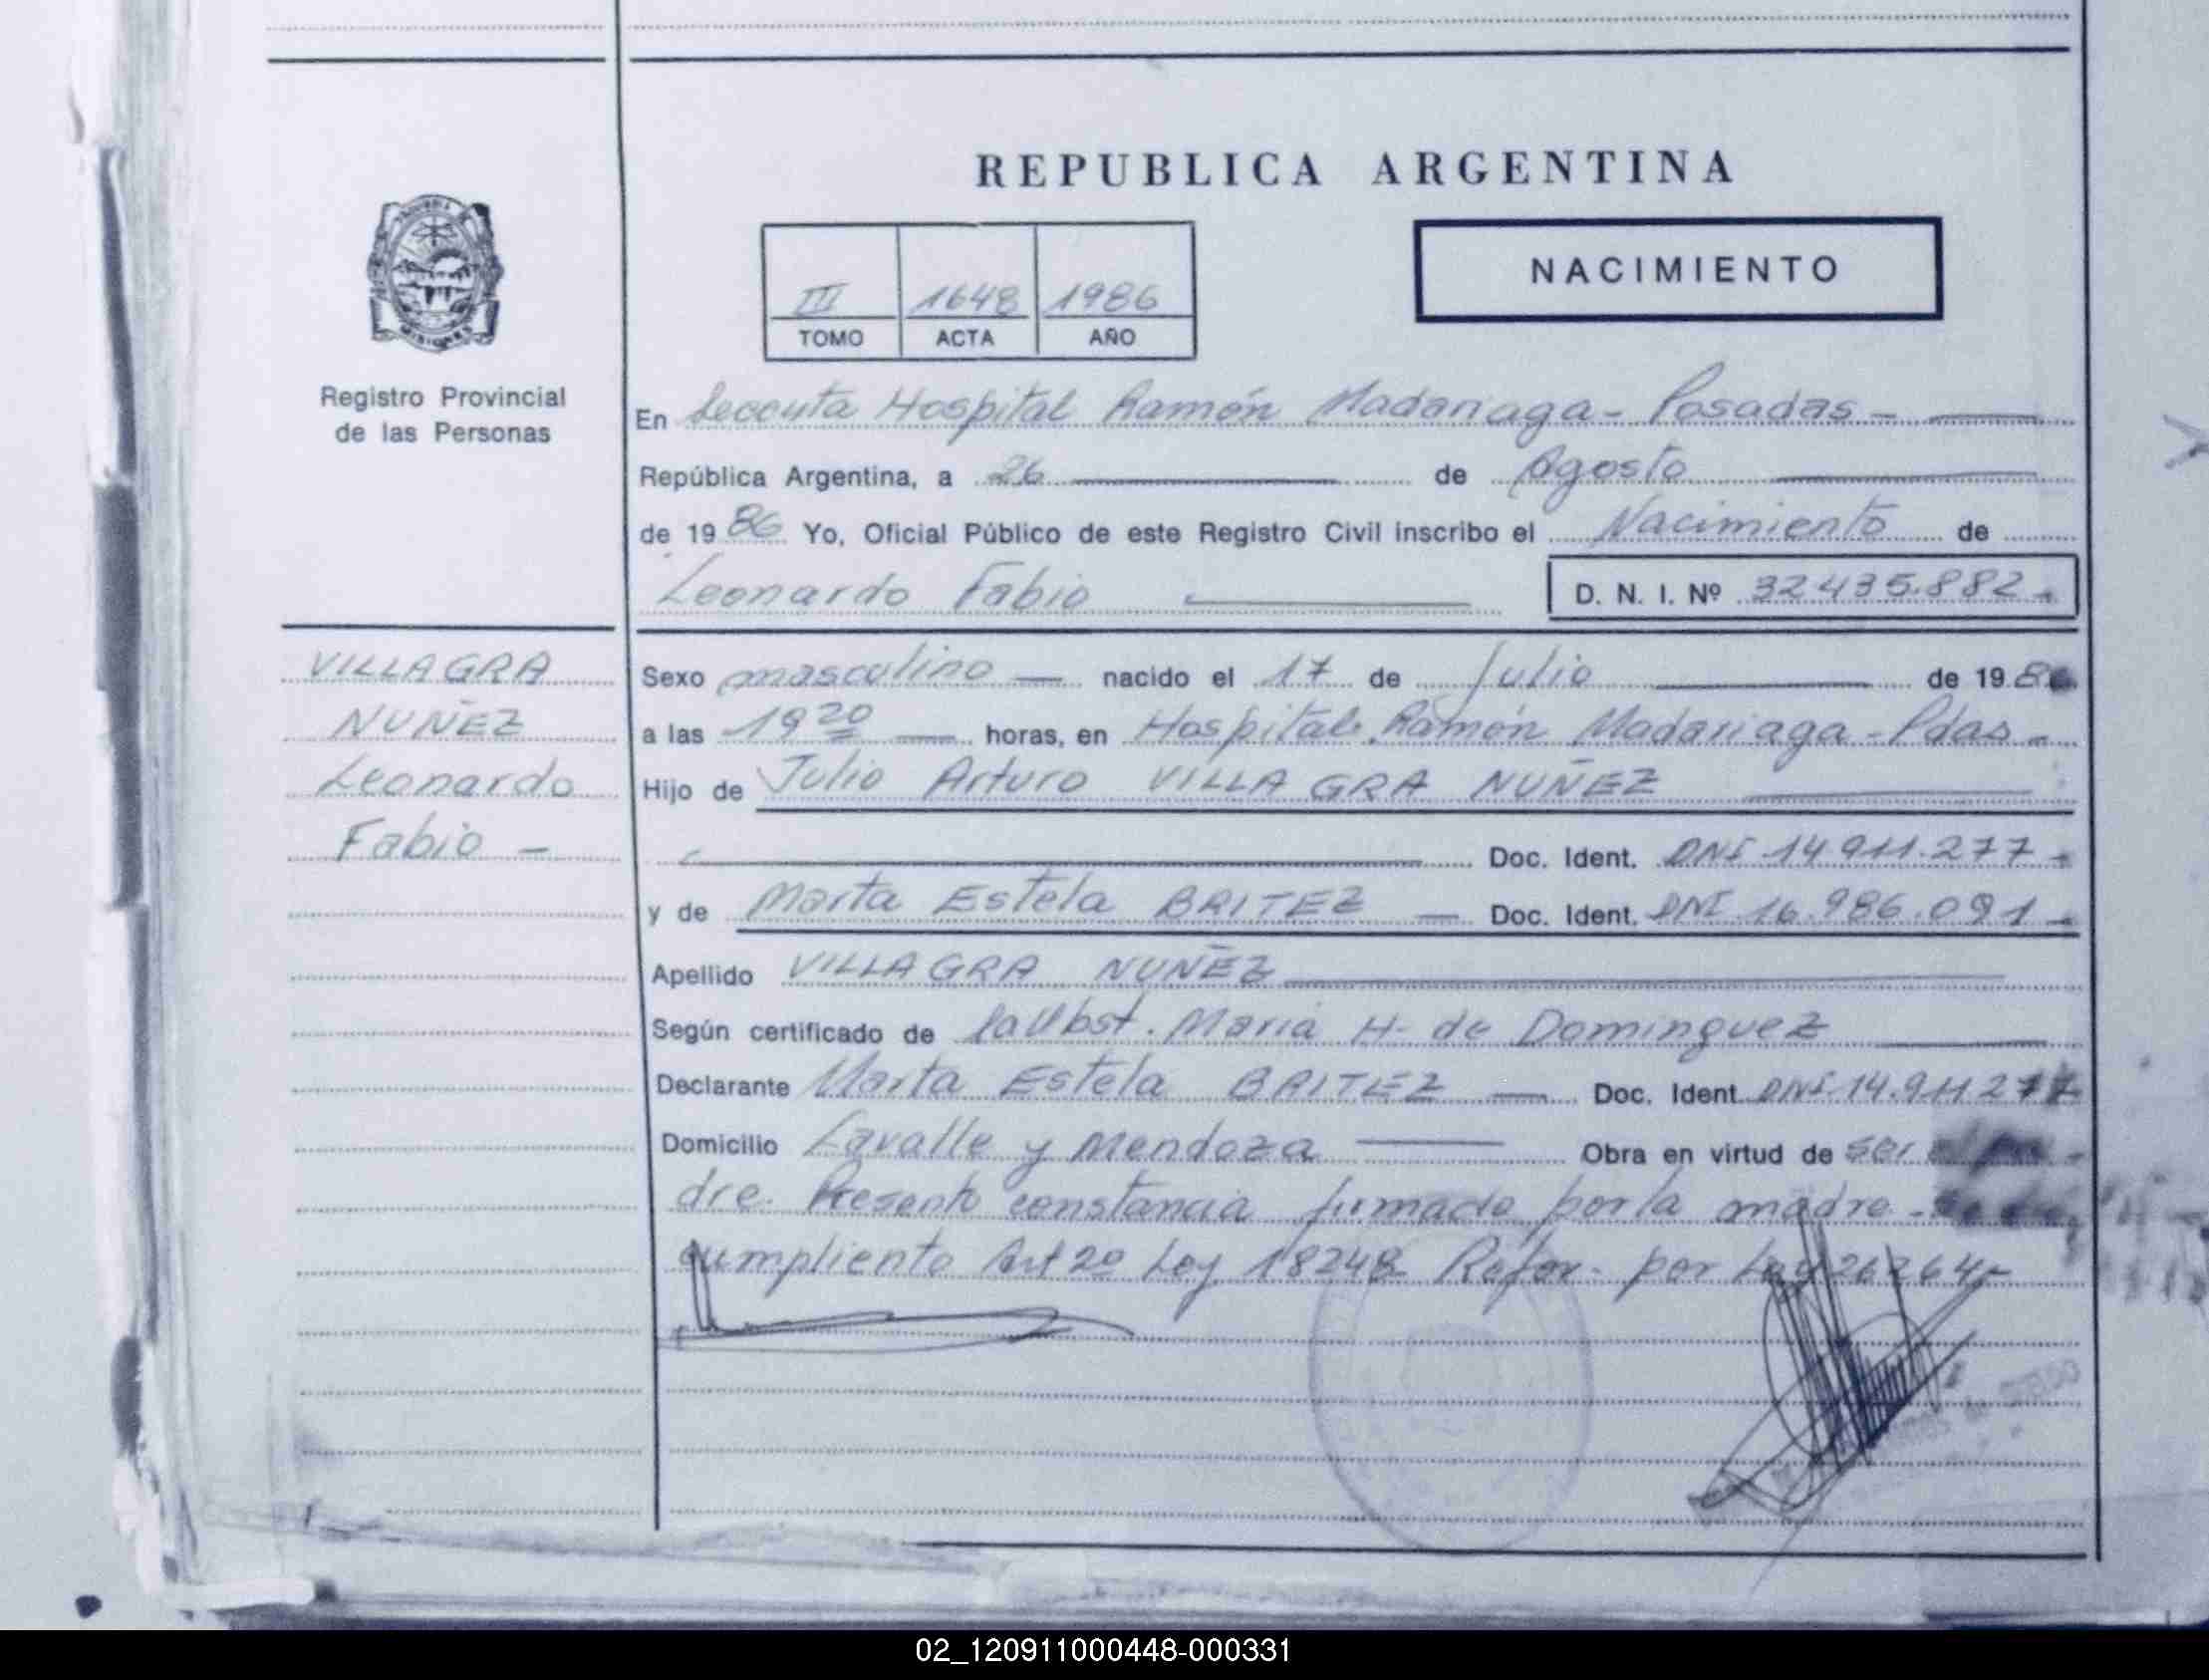 REPUBLICA ARGENTINA
NACIMIENTO
III 1648 1986
TOMO ACTA AÑO
Registro Provincial
de las Personas
En Seccuta Hospital Ramón Madariaga - Posadas -
República Argentina, a 26 de Agosto
de 1986 Yo, Oficial Público de este Registro Civil inscribo el Nacimiento de
Leonardo Fabio D. N. I. Nº 32435.882 -
VILLAGRA
NUÑEZ
Leonardo
Fabio -
Sexo masculino — nacido el 17 de Julio de 1986
a las 19 20 — horas, en Hospital Ramón Madariaga - Pdas -
Hijo de Julio Arturo VILLAGRA NUÑEZ
Doc. Ident. DNI 14.911.277 -
y de Marta Estela BRITEZ — Doc. Ident. DNI 16.986.091 -
Apellido VILLAGRA NUÑEZ
Según certificado de la Obst. Maria H. de Dominguez
Declarante Marta Estela BRITEZ — Doc. Ident. DNI 14.911277
Domicilio Lavalle y Mendoza — Obra en virtud de ser
dre. Presento constancia firmada por la madre -
cumpliento Art 2º Ley 18248 Refor. por Ley
02_120911000448-000331